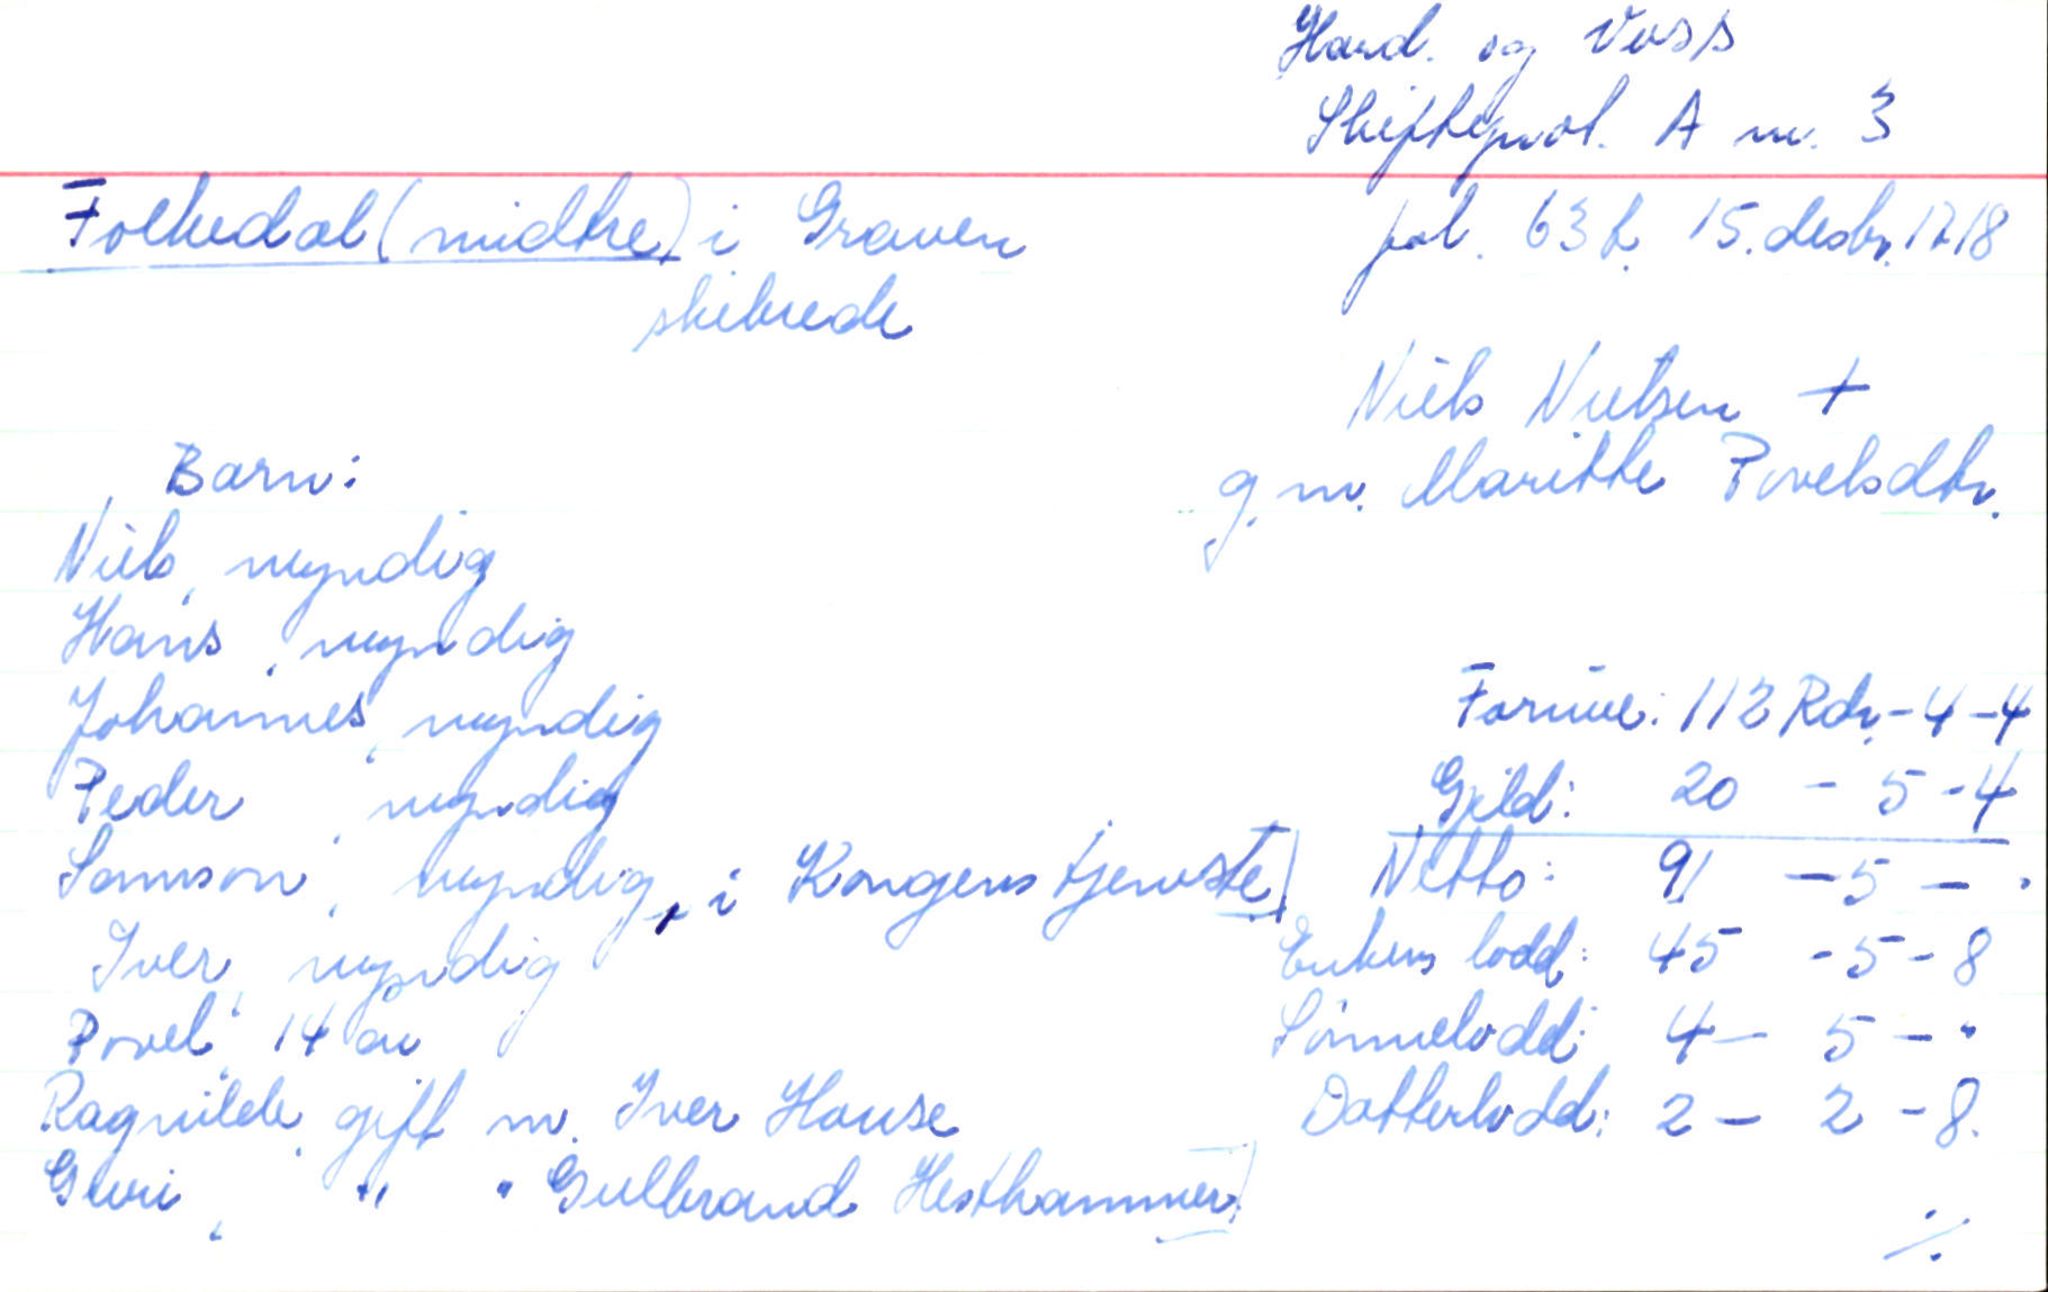 Hard. og Voss
Skifteprot. A nr. 3
Folkedal (midtre) i Graven
skibrede
fol. 63 b. 15. desbr. 1718
Niels Nielsen +
g. m. Maritte Povelsdtr.
Barn:
Niels, myndig
Hans, myndig
Johannes, myndig
Peder, myndig
Samson, myndig, i Kongens tjenste]
Iver, myndig
Povel, 14 år
Ragnilde, gift m. Iver Hause
Guri, " " Gulbrand Hesthammer]
Formue: 112 Rdr. - 4 - 4
Gjeld: 20 - 5 - 4
Netto: 91 - 5 - .
Enkens lodd: 45 - 5 - 8
Sønnelodd: 4 - 5 - .
Datterlodd: 2 - 2 - 8.
./.